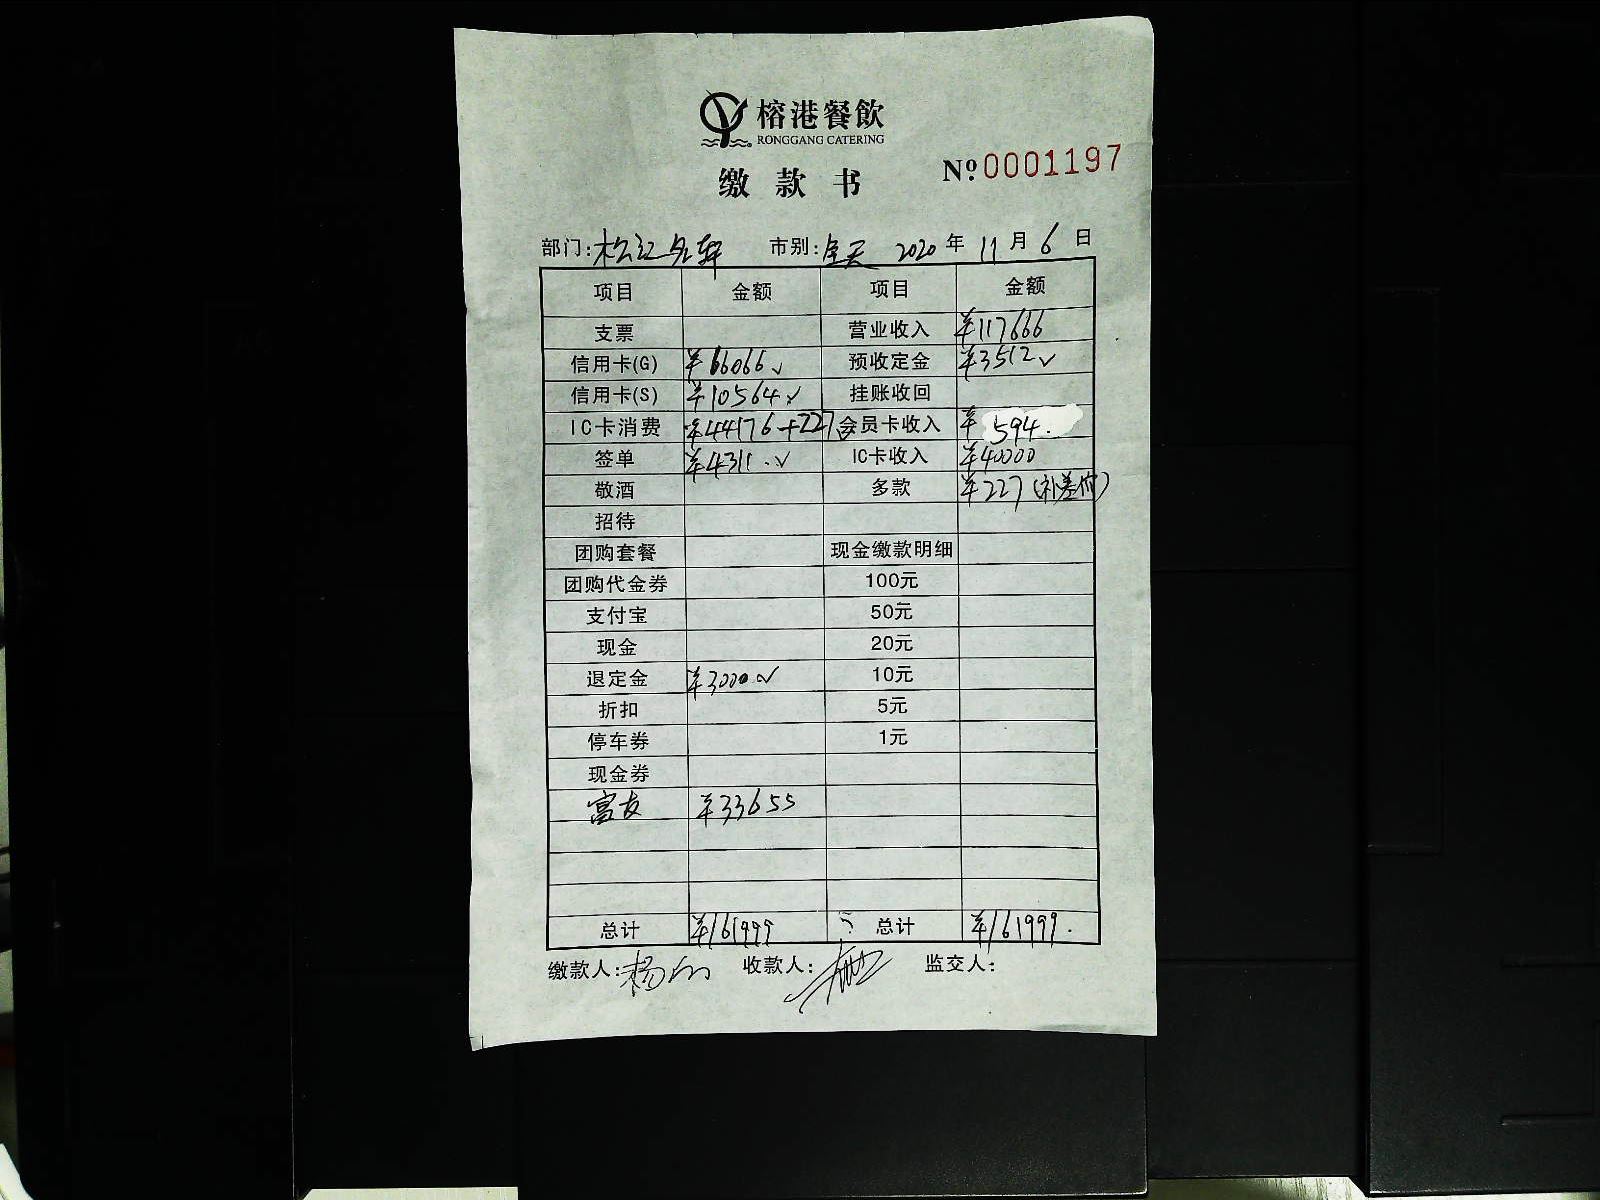 榕港餐飲
RONGGANG CATERING
缴款书
№ 0001197
部门: 松江名轩 市别: 全天 2020 年 11 月 6 日
项目 金额 项目 金额
支票 营业收入 ¥117666
信用卡(G) ¥66066 ✓ 预收定金 ¥3512 ✓
信用卡(S) ¥10564 ✓ 挂账收回
IC卡消费 ¥44176+227 会员卡收入 ¥594.
签单 ¥4311. ✓ IC卡收入 ¥40000
敬酒 多款 ¥227(补差价)
招待
团购套餐 现金缴款明细
团购代金券 100元
支付宝 50元
现金 20元
退定金 ¥3000 ✓ 10元
折扣 5元
停车券 1元
现金券
富友 ¥33655
总计 ¥161999 总计 ¥161999.
缴款人: 收款人: 监交人: